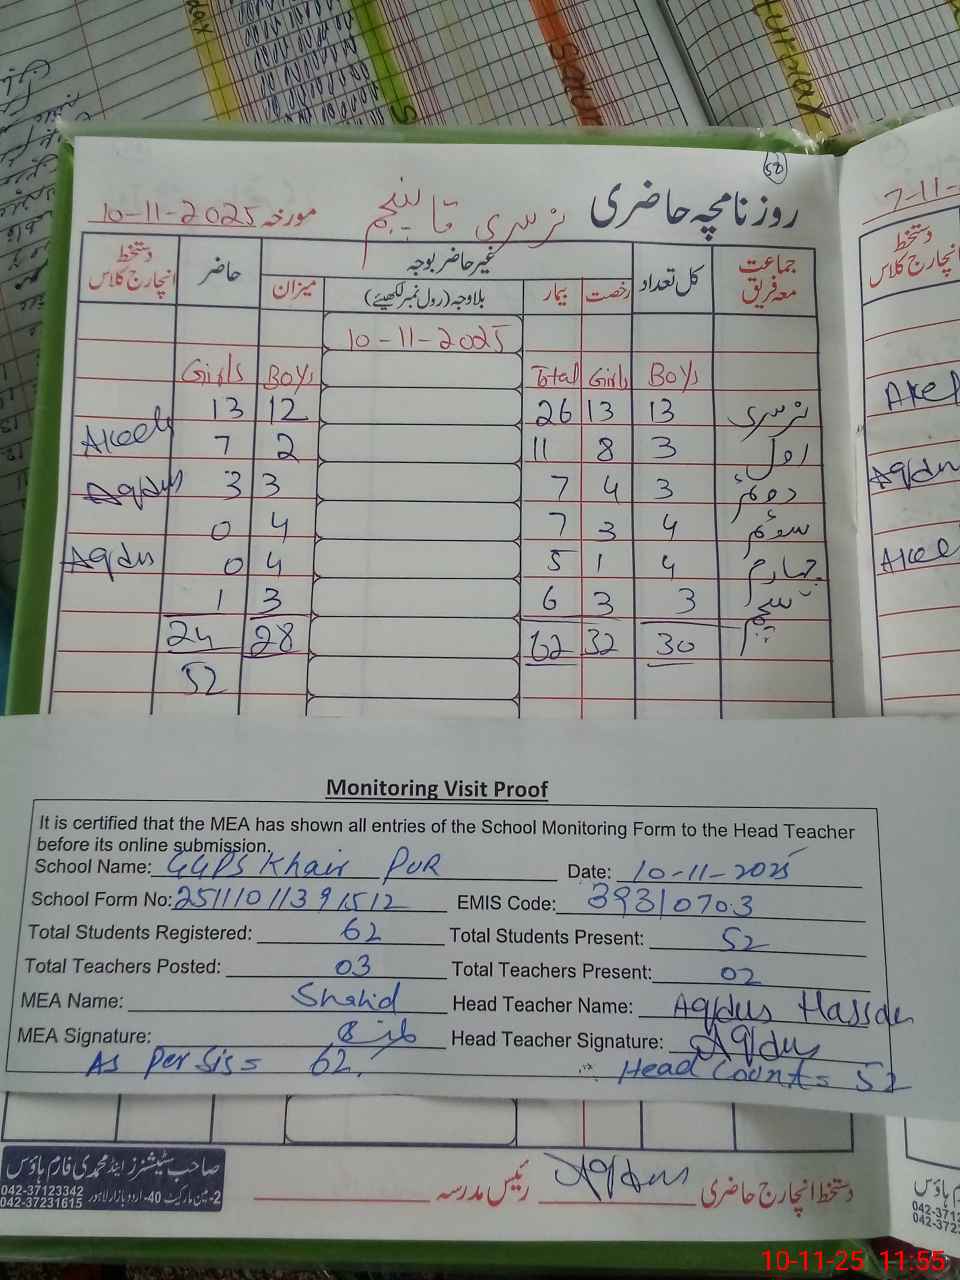 85
روزنامچہ حاضری نرسری تا پنجم مورخہ 10-11-2025
جماعت معہ فریق کل تعداد غیر حاضر بوجہ حاضر دستخط انچارج کلاس
رخصت بیمار بلاوجہ (رول نمبر لکھیئے) میزان
10-11-2025
Girls Boys Total Girls Boys
13 12 26 13 13 نرسری
Akeel 7 2 11 8 3 اول
Aqdus 3 3 7 4 3 دوئم
0 4 7 3 4 سوئم
Aqdus 0 4 5 1 4 چہارم
1 3 6 3 3 پنجم
24 28 62 32 30
52
Monitoring Visit Proof
It is certified that the MEA has shown all entries of the School Monitoring Form to the Head Teacher
before its online submission.
School Name: GGPS Khair PUR Date: 10-11-2025
School Form No: EMIS Code: 39310703
Total Students Registered: 62 Total Students Present: 52
Total Teachers Posted: 03 Total Teachers Present: 02
MEA Name: Shahid Head Teacher Name: Aqdus Hassan
MEA Signature: Head Teacher Signature: Aqdus
As Per Sis = 62. Head Count = 52
دستخط انچارج حاضری Aqdus رئیس مدرسہ
صاحب سٹیشنرز اینڈ محمدی فارم ہاؤس
2-مین مارکیٹ 40- اردو بازار لاہور
042-37123342
042-37231615
7-11-
دستخط
انچارج کلاس
Akeel
Aqdus
Akeel
10-11-25 11:55